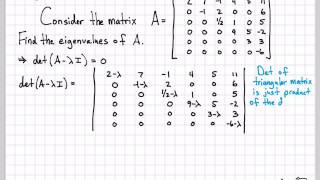 2 7 -1 4 5 11
Consider the matrix A= 0 -1 2 0 0 6
0 0 ½ 1 0 5
Find the eigenvalues of A. 0 0 0 9 5 -2
0 0 0 0 3 3
0 0 0 0 0 -6
⇒ det(A-λI)=0
2-λ 7 -1 4 5 11
0 -1-λ 2 0 0 6
det(A-λI)= 0 0 ½-λ 1 0 5
0 0 0 9-λ 5 -2
0 0 0 0 3-λ 3
0 0 0 0 0 -6-λ
Det of
triangular matrix
is just product
of the d